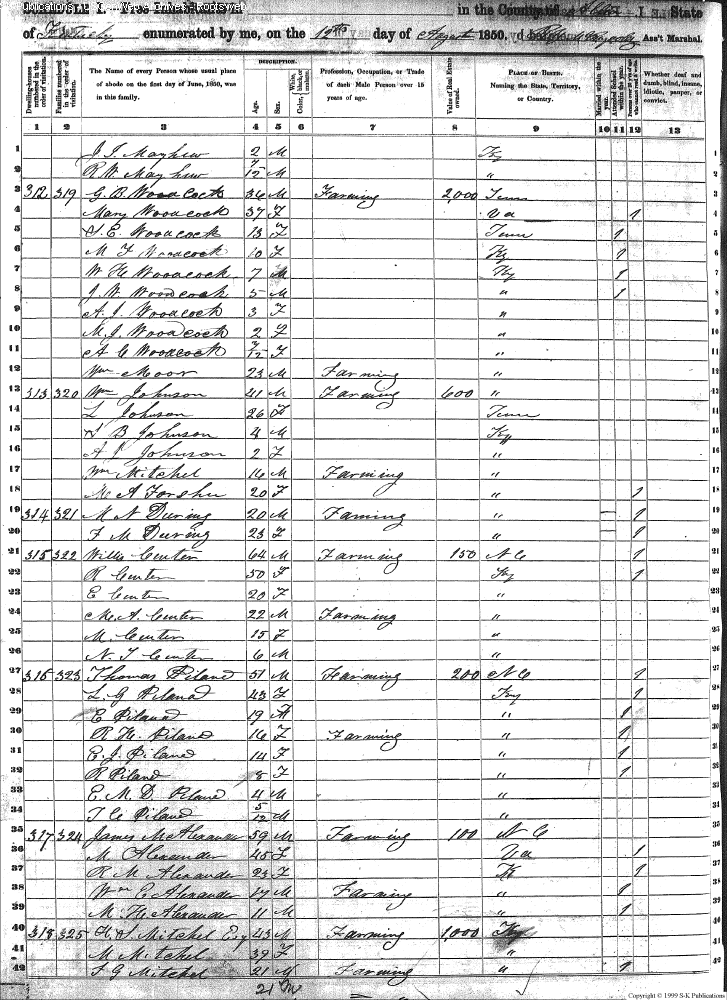 in the County of State
of enumerated by me, on the 19th day of August 1850. Ass't Marshal.
DESCRIPTION.
Dwelling-houses numbered in the order of visitation. Families numbered in the order of visitation. The Name of every Person whose usual place of abode on the first day of June, 1850, was in this family. Age. Sex. White, black, or mulatto. Color, Profession, Occupation, or Trade of each Male Person over 15 years of age. Value of Real Estate owned. PLACE OF BIRTH. Naming the State, Territory, or Country. Married within the year. Attended School within the year. Whether deaf and dumb, blind, insane, idiotic, pauper, or convict.
1 2 3 4 5 6 7 8 9 10 11 12 13
1 J. I. Mayhew 2 M Ky 1
2 R. W. Mayhew 7/12 M " 2
3 312 319 G. B. Woodcock 36 M Farming 2,000 Tenn 3
4 Mary Woodcock 37 F Va 1 4
5 S. E. Woodcock 13 F Tenn 1 5
6 M F Woodcock 10 F Ky 1 6
7 W H Woodcock 7 M Ky 1 7
8 J. W. Woodcock 5 M " 1 8
9 A. J. Woodcock 3 F " 9
10 M. J. Woodcock 2 F " 10
11 A C Woodcock 7/12 F " 11
12 Wm Moor 23 M Farming " 12
13 313 320 Wm Johnson 41 M Farming 600 " 13
14 L Johnson 26 F Tenn 14
15 S B Johnson 4 M Ky 15
16 A J Johnson 2 F " 16
17 Wm Mitchel 16 M Farming " 17
18 M A Forshu 20 F " 1 18
19 314 321 M N During 20 M Farming " – 1 19
20 F M During 23 F " – 1 20
21 315 322 Willis Center 64 M Farming 150 N C 1 21
22 R Center 50 F Ky 1 22
23 E Center 20 F " 23
24 M. A. Center 22 M Farming " 24
25 M. Center 15 F " 25
26 N. T Center 6 M " 26
27 316 323 Thomas Piland 51 M Farming 200 N C 1 27
28 L. G Piland 43 F Ky 1 28
29 E Piland 19 " 1 29
30 R H. Piland 16 F Farming " 1 30
31 E. J. Piland 14 F " 1 31
32 R Piland 8 F " 1 32
33 E M. D. Piland 4 M " 33
34 T C Piland 5/12 M " 34
35 317 324 James McAlexander 59 M Farming 100 N C 35
36 M Alexander 45 F Va 1 36
37 R M Alexander 23 F K 1 37
38 Wm E Alexander 17 M Farming " 1 38
39 M. H. Alexander 11 M " 1 39
40 318 325 H S Mitchel Esq 43 M Farming 1,000 Ky 40
41 M Mitchel 39 F " 41
42 S G Mitchel 21 M Farming " 1 42
21 M
Copyright © 1999 S-K Publications